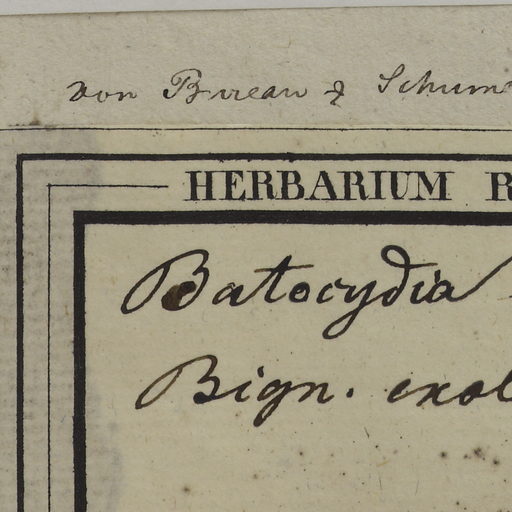 von Bureau & Schum
HERBARIUM R
Batocydia
Bign. exol